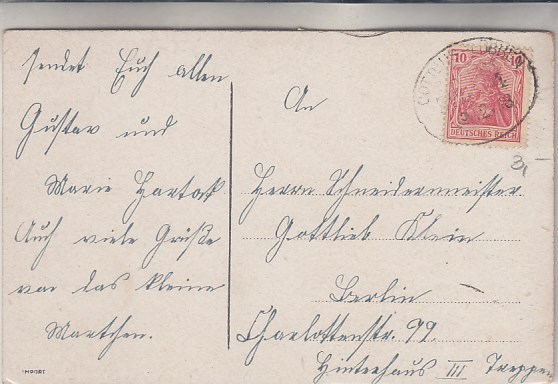 sendet Euch allen
Gustav und
Marie Hartosk
Auch viele Grüße
von das kleine
Martchen.
An
Herrn Schneidermeister
Gottlieb Klein
Berlin
Charlottenstr. 99
Hinterhaus III Treppen
10
DEUTSCHES REICH
3,-